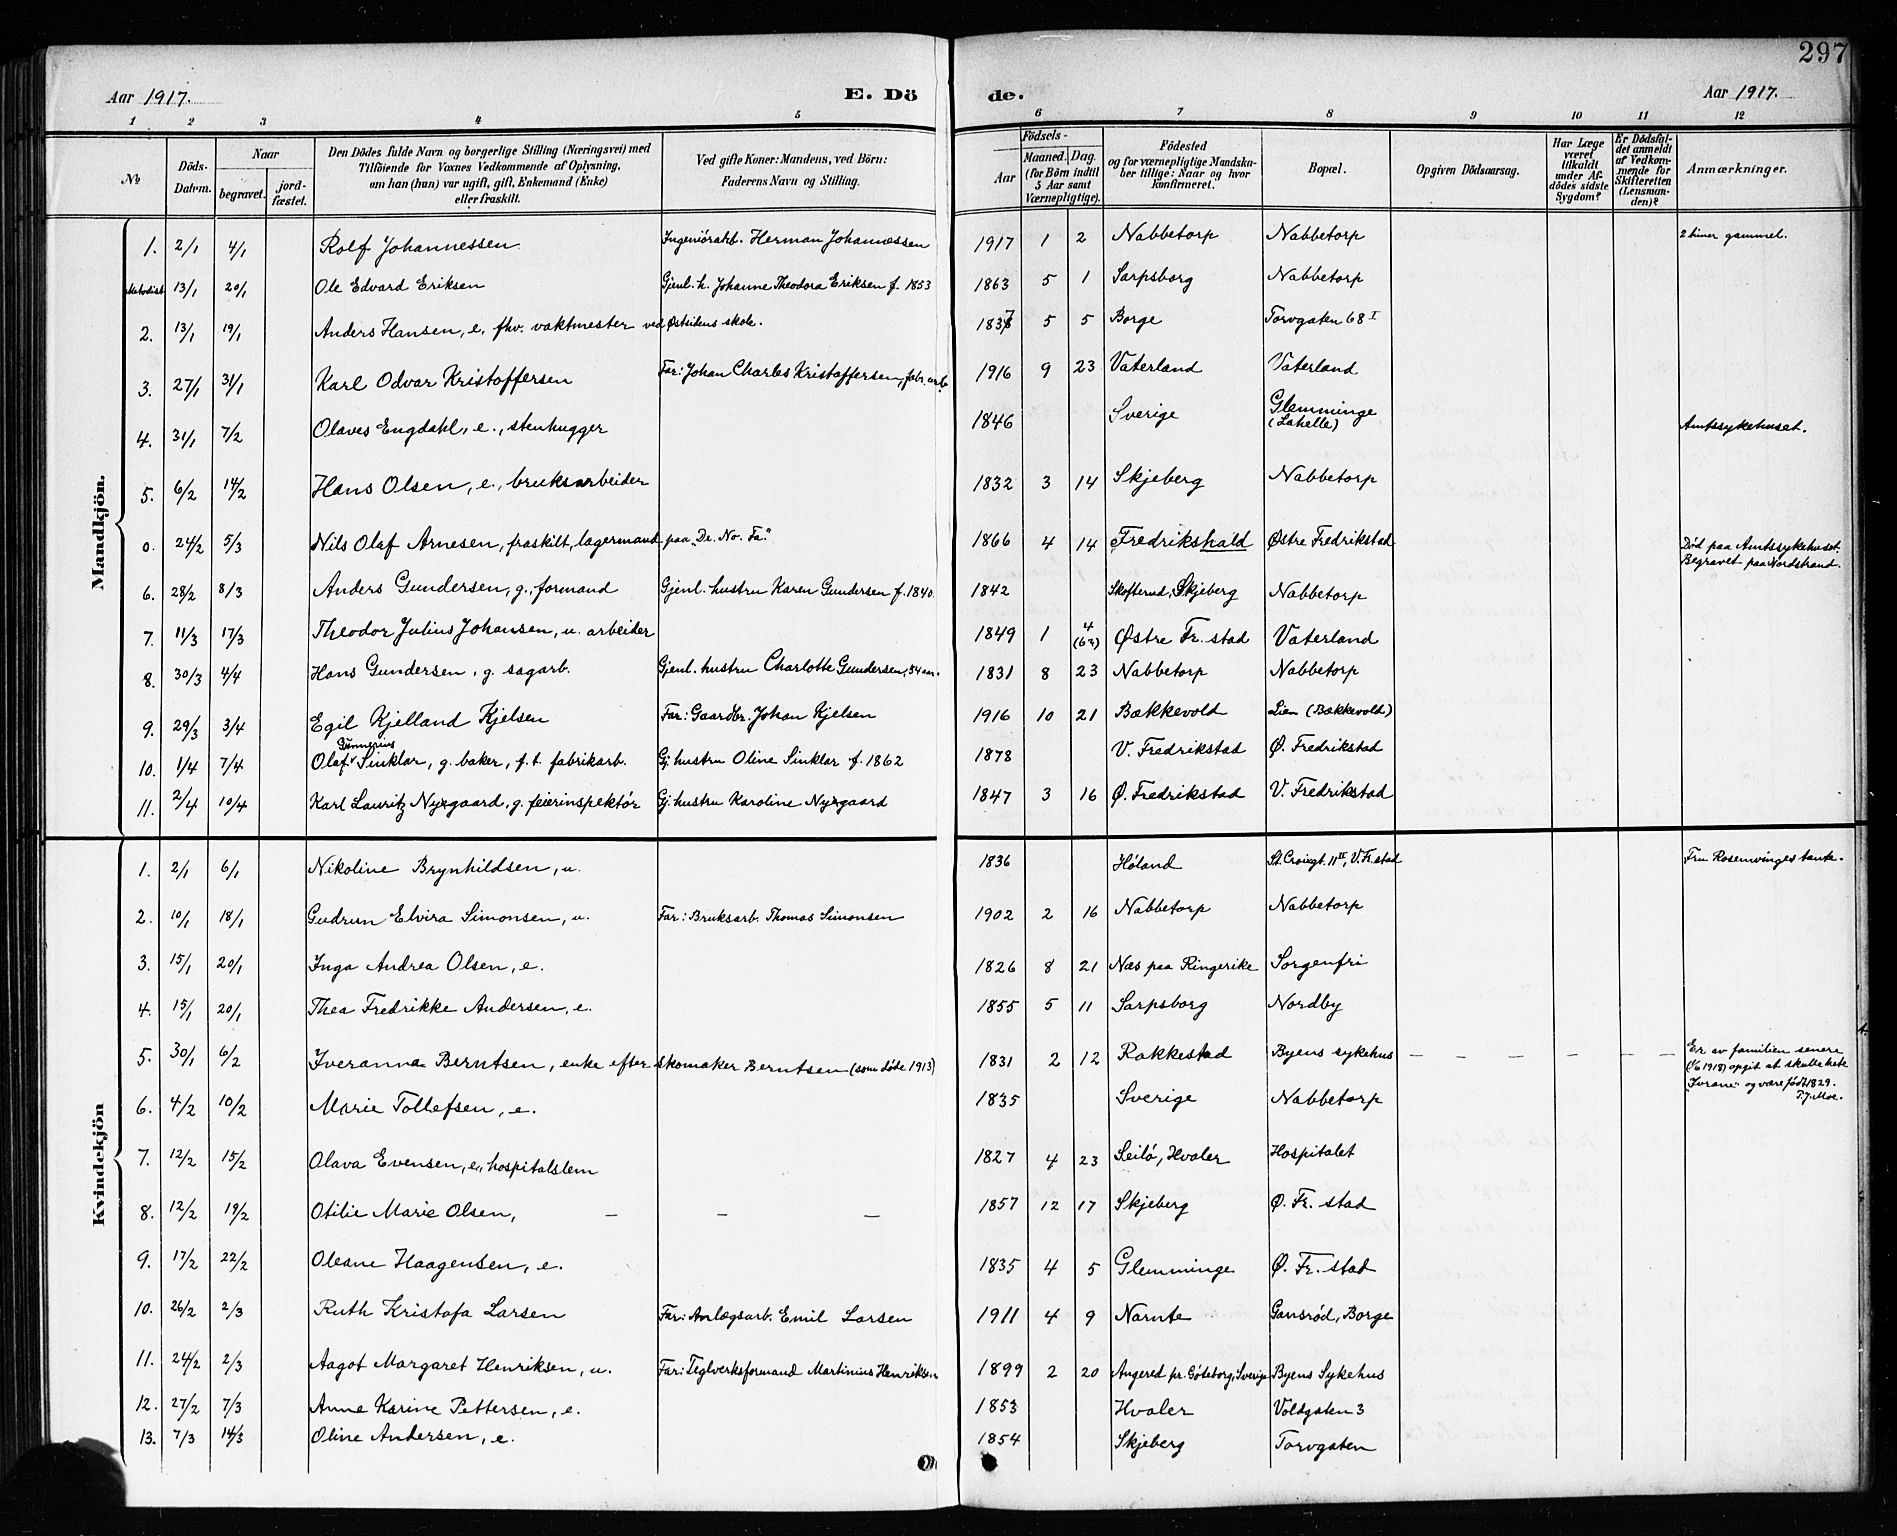 297
Aar 1917. E. Dö de. Aar 1917.
1 2 3 4 5 6 7 8 9 10 11 12
№ Döds-Datum. Naar begravet. jordfæstet. Den Dödes fulde Navn og borgerlige Stilling (Næringsvei) med Tilföiende for Voxnes Vedkommende af Oplysning, om han (hun) var ugift, gift, Enkemand (Enke) eller fraskilt. Ved gifte Koner: Mandens, ved Börn: Faderens Navn og Stilling. Födsels- Aar Maaned. Dag. (for Börn indtil 5 Aar samt Værnepligtige). Födested og for værnepligtige Mandskaber tillige: Naar og hvor konfirmeret. Bopæl. Opgiven Dödsaarsag. Har Læge været tilkaldt under Afdödes sidste Sygdom? Er Dödsfaldet anmeldt af Vedkommende for Skifteretten (Lensmanden)? Anmærkninger.
Mandkjön.
1. 2/1 4/1 Rolf Johannessen Ingeniørarb. Herman Johannessen 1917 1 2 Nabbetorp Nabbetorp 2 timer gammel.
Metodist 13/1 20/1 Ole Edvard Eriksen Gjenl. h. Johanne Theodora Eriksen f. 1853 1863 5 1 Sarpsborg Nabbetorp
2. 13/1 19/1 Anders Hansen, e. fhv. vaktmester ved Østsidens skole. 1837 5 5 Borge Torvgaten 68 I
3. 27/1 31/1 Karl Odvar Kristoffersen Far: Johan Charles Kristoffersen, fabr. arb. 1916 9 23 Vaterland Vaterland
4. 31/1 7/2 Olaves Engdahl, e., stenhugger 1846 Sverige Glemminge (Lahelle) Amtssykehuset.
5. 6/2 14/2 Hans Olsen, e., bruksarbeider 1832 3 14 Skjeberg Nabbetorp
0. 24/2 5/3 Nils Olaf Arnesen, fraskilt, lagermand paa "De. No. Fa." 1866 4 14 Fredrikshald Østre Fredrikstad Død paa Amtssykehuset. Begravet paa Nordstrand.
6. 28/2 8/3 Anders Gundersen, g., formand Gjenl. hustru Karen Gundersen f. 1840. 1842 Skofterud, Skjeberg Nabbetorp
7. 11/3 17/3 Theodor Julius Johansen, u. arbeider 1849 1 4 (6?) Østre Fr. stad Vaterland
8. 30/3 4/4 Hans Gundersen, g. sagarb. Gjenl. hustru Charlotte Gundersen, 84 aar. 1831 8 23 Nabbetorp Nabbetorp
9. 29/3 3/4 Egil Kjelland Kjelsen Far: Gaardbr. Johan Kjelsen 1916 10 21 Bækkevold Lien (Bækkevold)
10. 1/4 7/4 Olaf Gunnerius Sinklar, g. baker, f.t. fabrikarb. Gj. hustru Oline Sinklar f. 1862 1878 V. Fredrikstad Ø. Fredrikstad
11. 2/4 10/4 Karl Lauritz Nygaard, g. feierinspektør Gj. hustru Karoline Nygaard 1847 3 16 Ø. Fredrikstad V. Fredrikstad
Kvindekjön
1. 2/1 6/1 Nikoline Brynhildsen, u. 1836 Høland St. Croixgt. 11 II, V. Fr. stad Fru Rosenvinges tante.
2. 10/1 18/1 Gudrun Elvira Simonsen, u. Far: Bruksarb. Thomas Simonsen 1902 2 16 Nabbetorp Nabbetorp
3. 15/1 20/1 Inga Andrea Olsen, e. 1826 8 21 Næs paa Ringerike Sorgenfri
4. 15/1 20/1 Thea Fredrikke Andersen, e. 1855 5 11 Sarpsborg Nordby
5. 30/1 6/2 Iveranna Berntsen, enke efter skomaker Berntsen (som døde 1913) 1831 2 12 Rakkestad Byens sykehus – – – – Er av familien senere (1/6 1918) opgit at skulle hete Ivrane og være født 1829. P.J. Moe.
6. 4/2 10/2 Marie Tollefsen, e. 1835 Sverige Nabbetorp
7. 12/2 15/2 Olava Evensen, e., hospitalslem 1827 4 23 Seilø, Hvaler Hospitalet
8. 12/2 19/2 Otilie Marie Olsen, – – – 1857 12 17 Skjeberg Ø. Fr. stad
9. 17/2 22/2 Oleane Haagensen, e. 1835 4 5 Glemminge Ø. Fr. stad
10. 26/2 2/3 Ruth Kristofa Larsen Far: Anlægsarb. Emil Larsen 1911 4 9 Narnte Gansrød, Borge
11. 24/2 2/3 Aagot Margaret Henriksen, u. Far: Teglverksformand Martinius Henriksen 1899 2 20 Angered pr. Göteborg, Sverige Byens Sykehus
12. 27/2 7/3 Anne Karine Pettersen, e. 1853 Hvaler Voldgaten 3
13. 7/3 14/3 Oline Andersen, e. 1854 Skjeberg Torvgaten